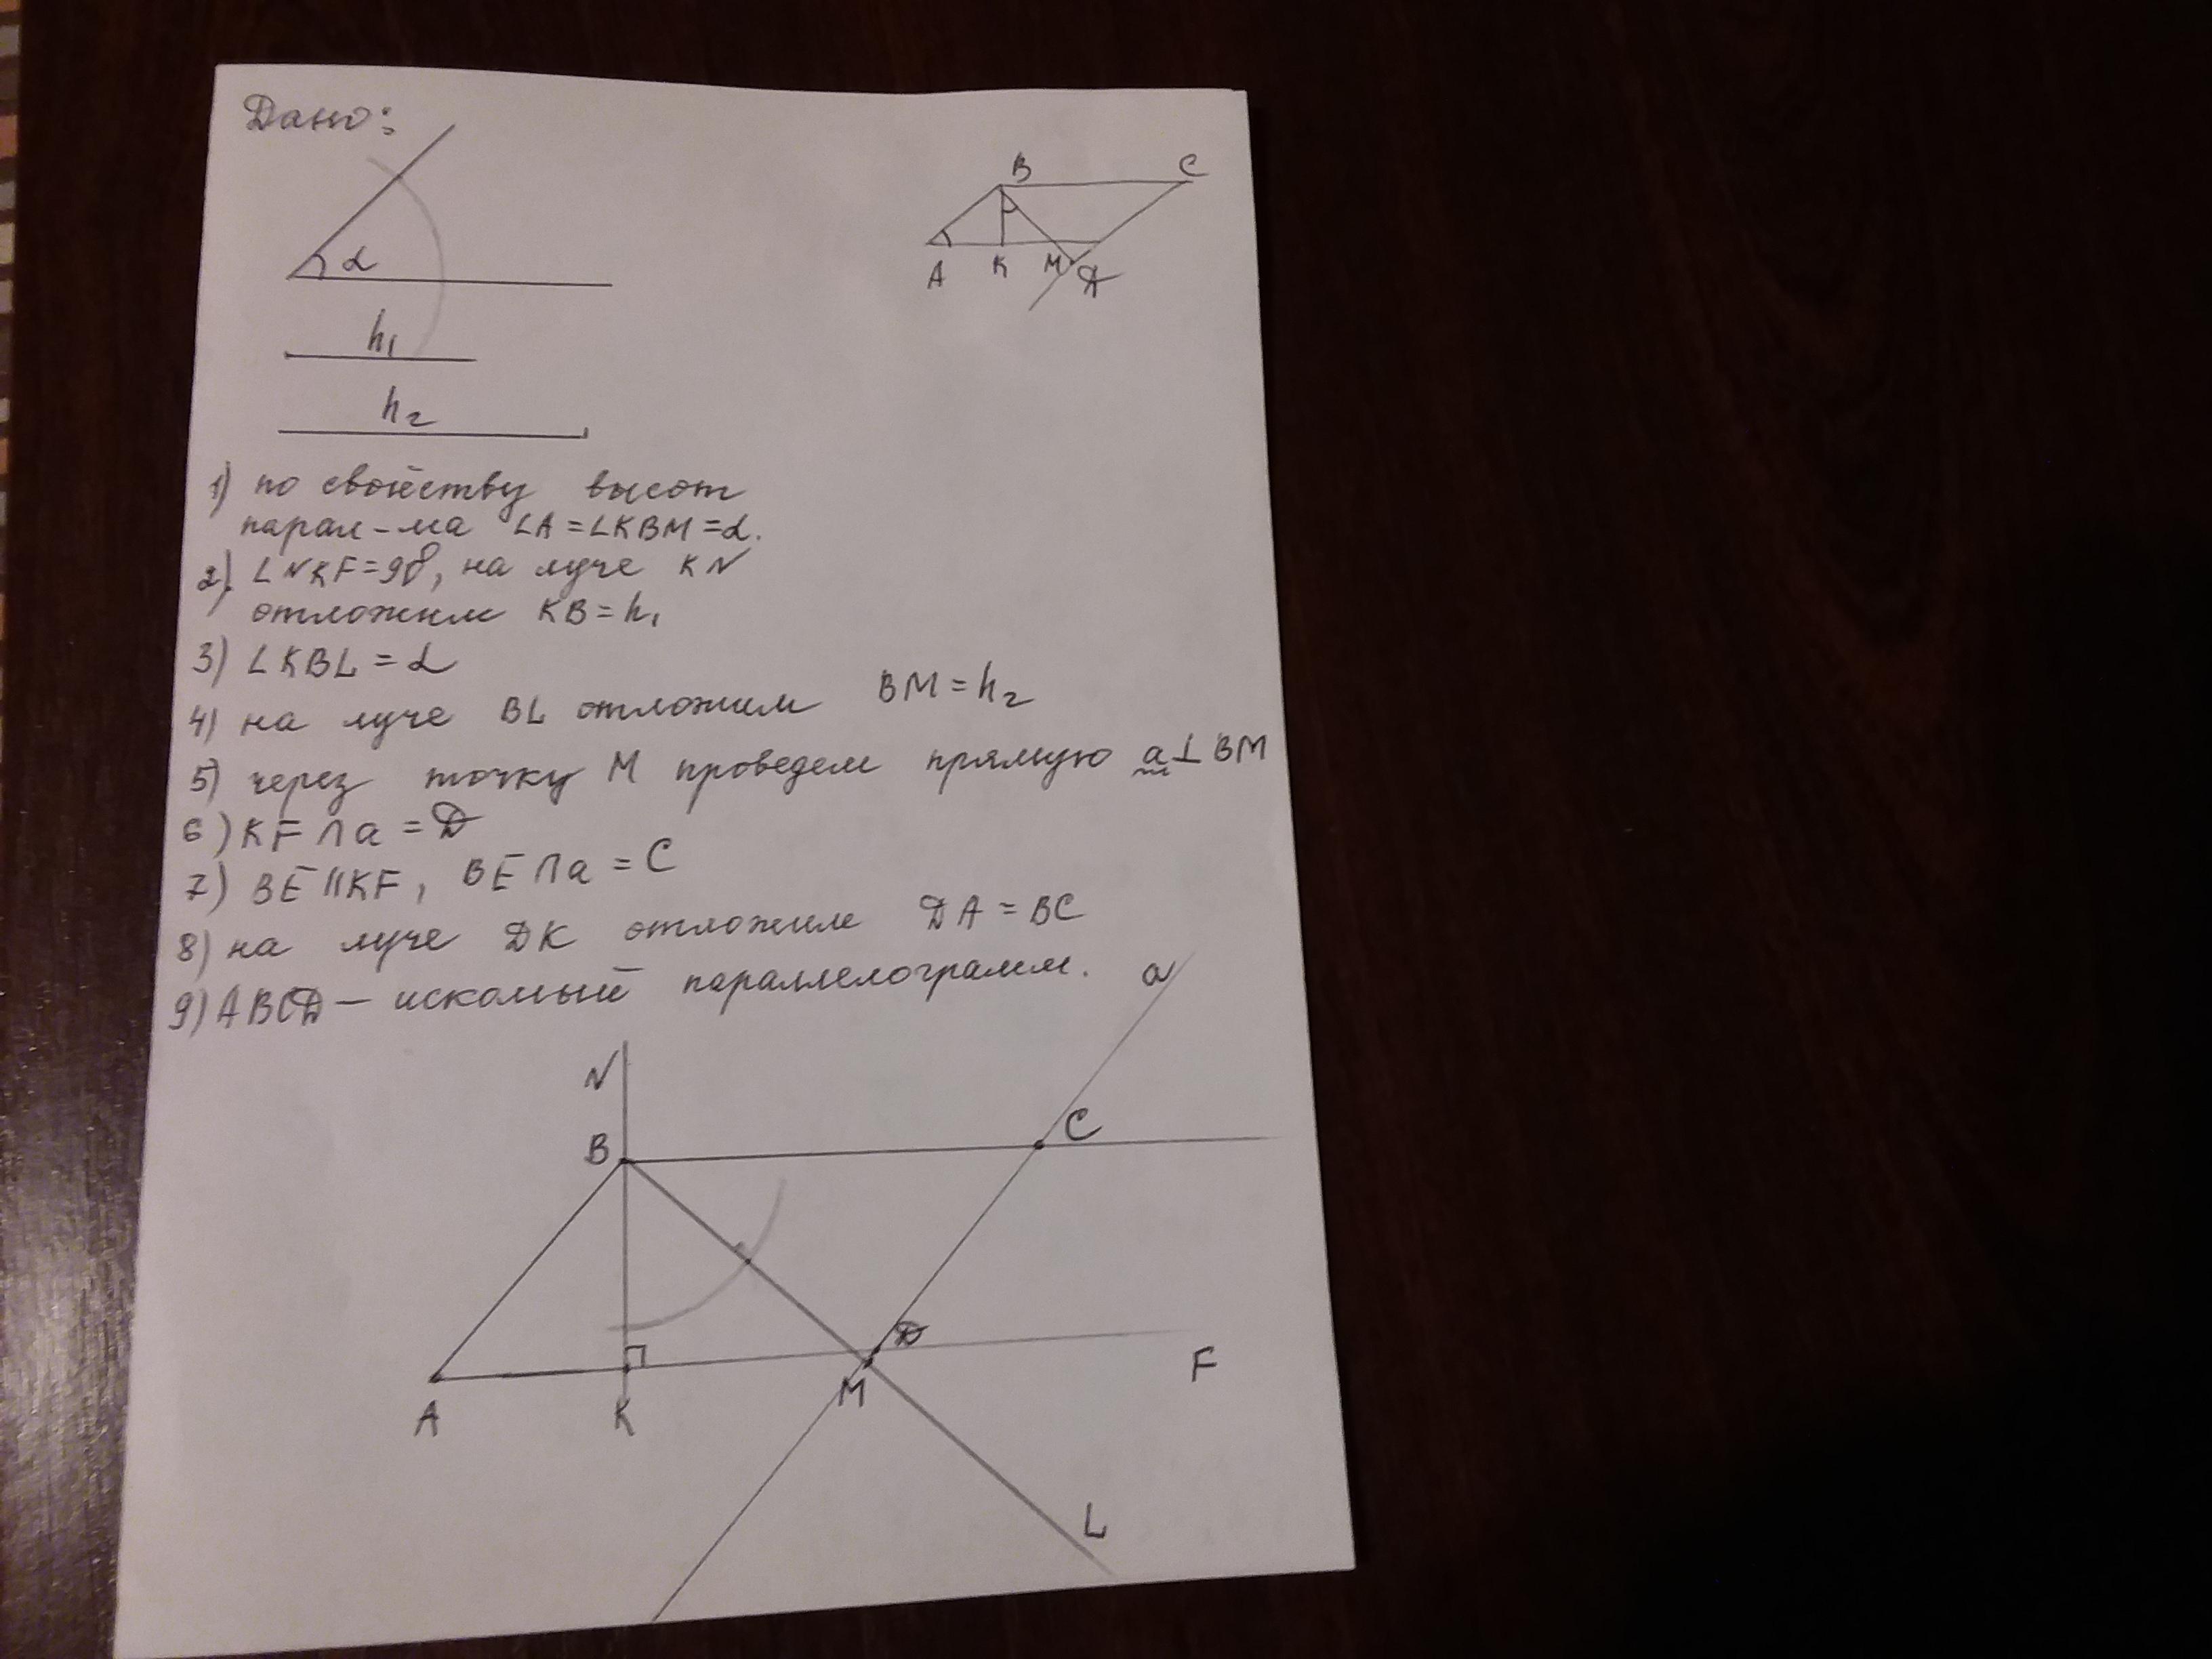 Дано:
B C
α
A K M D
h₁
h₂
1) по свойству высот
парал-ма ∠A=∠KBM=α.
2). ∠NKF=90, на луче KN
отложим KB=h₁
3) ∠KBL=α
4) на луче BL отложим BM=h₂
5) через точку M проведем прямую a⊥BM
6) KF∩a=D
7) BE∥KF, BE∩a=C
8) на луче DK отложим DA=BC
9) ABCD — искомый параллелограмм.
a
N
B C
D
A K M F
L